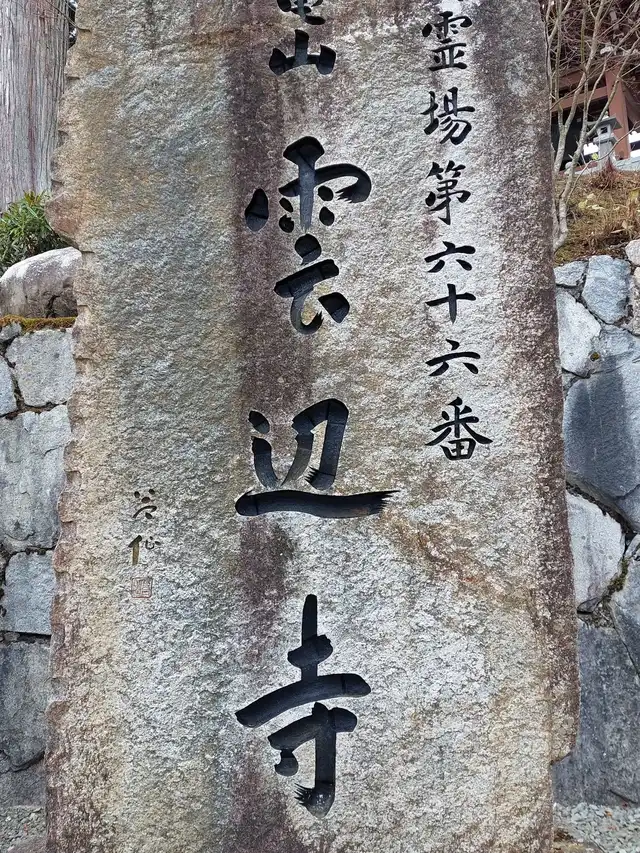 霊場第六十六番
山雲辺寺